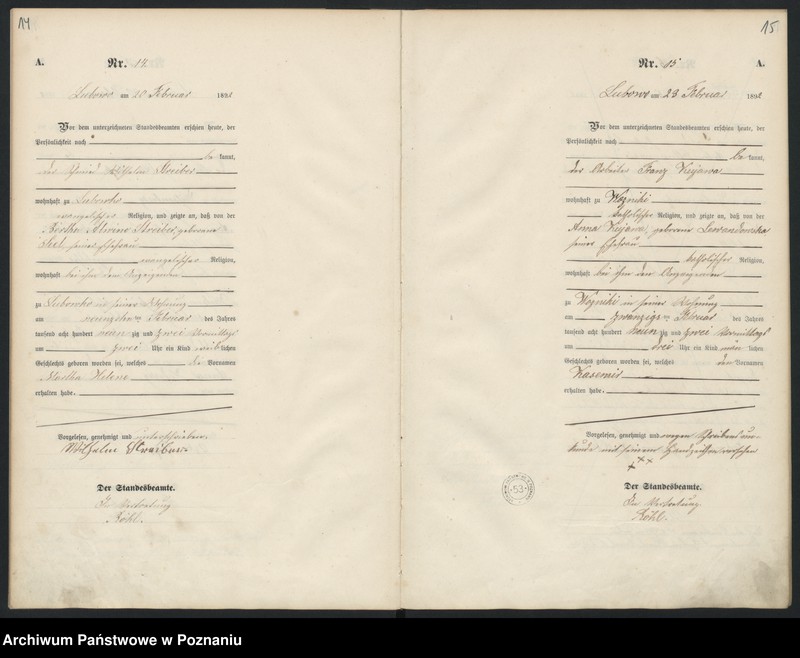 14
A.
Nr. 14.
Lubowo am 20 Februar 1892
Vor dem unterzeichneten Standesbeamten erschien heute, der
Persönlichkeit nach
be kannt,
der Wilhelm Streiber
wohnhaft zu Lubowo
evangelischer Religion, und zeigte an, daß von der
Streiber geborene
seiner Ehefrau
evangelischer Religion,
wohnhaft bei ihm dem Anzeigenden
zu in seiner Wohnung
am neunzehn ten Februar des Jahres
tausend acht hundert neun zig und zwei Vormittags
um zwei Uhr ein Kind weib lichen
Geschlechts geboren worden sei, welches die Vornamen
Martha Helene
erhalten habe.
Vorgelesen, genehmigt und unterschrieben.
Wilhelm Streiber
Der Standesbeamte.
In Vertretung
Röhl.
15
Nr. 15 A.
Lubowo am 23 Februar 1892
Vor dem unterzeichneten Standesbeamten erschien heute, der
Persönlichkeit nach
be kannt,
der Arbeiter Franz Kujawa
wohnhaft zu Wozniki
katholischer Religion, und zeigte an, daß von der
Anna Kujawa, geborene Lewandowska
seiner Ehefrau
katholischer Religion,
wohnhaft bei ihm dem Anzeigenden
zu Wozniki in seiner Wohnung
am zwanzigsten Februar des Jahres
tausend acht hundert neun zig und zwei Vormittags
um drei Uhr ein Kind männ lichen
Geschlechts geboren worden sei, welches den Vornamen
Kasemir
erhalten habe.
Vorgelesen, genehmigt und wegen Schreibensun-
kunde mit seinem Handzeichen versehen
+++
53
Der Standesbeamte.
In Vertretung
Röhl.
Archiwum Państwowe w Poznaniu